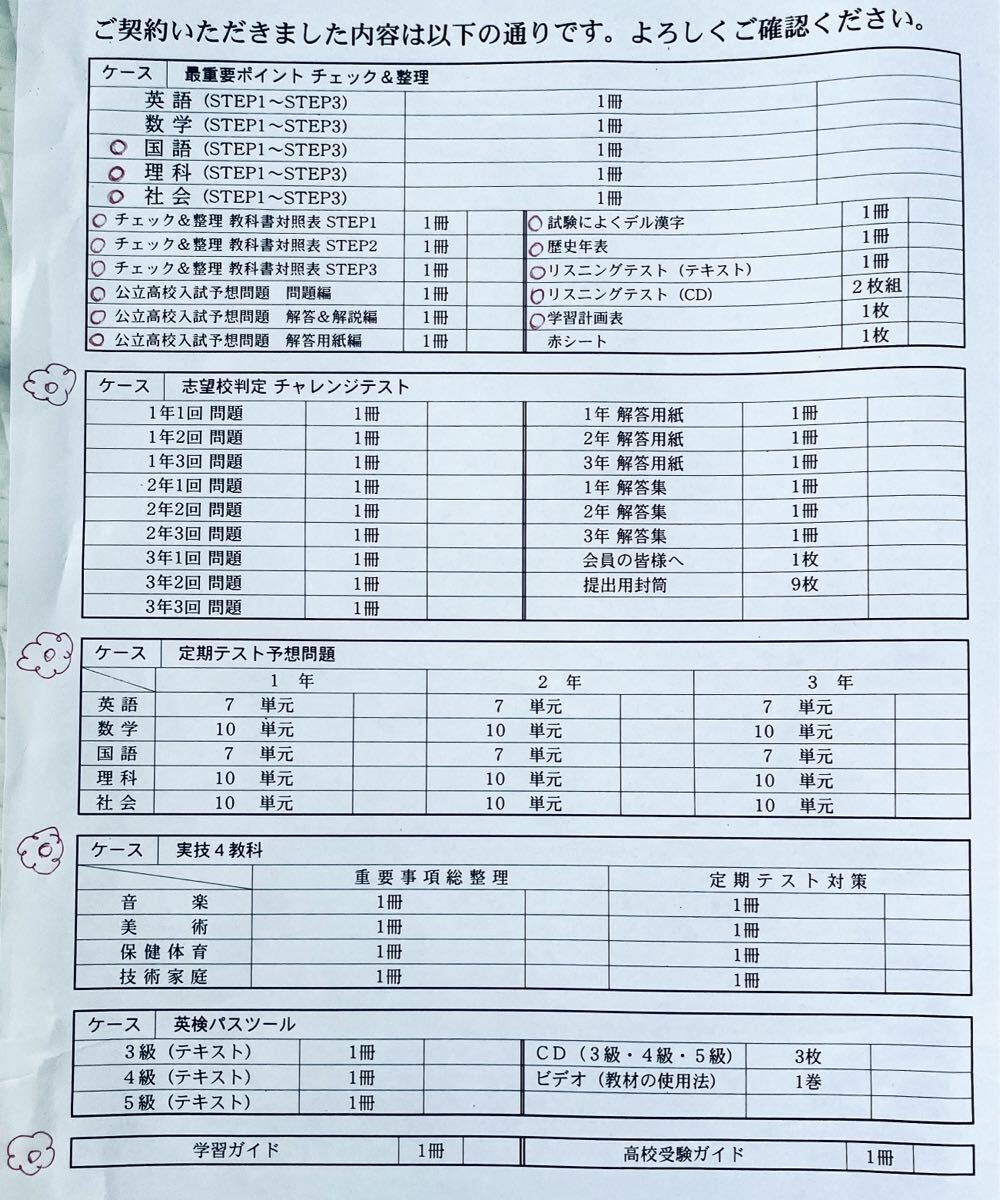 ご契約いただきました内容は以下の通りです。よろしくご確認ください。
ケース 最重要ポイント チェック＆整理
英語（STEP1～STEP3） 1冊
数学（STEP1～STEP3） 1冊
国語（STEP1～STEP3） 1冊
理科（STEP1～STEP3） 1冊
社会（STEP1～STEP3） 1冊
チェック＆整理 教科書対照表 STEP1 1冊 試験によくデル漢字 1冊
チェック＆整理 教科書対照表 STEP2 1冊 歴史年表 1冊
チェック＆整理 教科書対照表 STEP3 1冊 リスニングテスト（テキスト） 1冊
公立高校入試予想問題 問題編 1冊 リスニングテスト（CD） 2枚組
公立高校入試予想問題 解答＆解説編 1冊 学習計画表 1枚
公立高校入試予想問題 解答用紙編 1冊 赤シート 1枚
ケース 志望校判定 チャレンジテスト
1年1回 問題 1冊 1年 解答用紙 1冊
1年2回 問題 1冊 2年 解答用紙 1冊
1年3回 問題 1冊 3年 解答用紙 1冊
2年1回 問題 1冊 1年 解答集 1冊
2年2回 問題 1冊 2年 解答集 1冊
2年3回 問題 1冊 3年 解答集 1冊
3年1回 問題 1冊 会員の皆様へ 1枚
3年2回 問題 1冊 提出用封筒 9枚
3年3回 問題 1冊
ケース 定期テスト予想問題
1 年 2 年 3 年
英語 7 単元 7 単元 7 単元
数学 10 単元 10 単元 10 単元
国語 7 単元 7 単元 7 単元
理科 10 単元 10 単元 10 単元
社会 10 単元 10 単元 10 単元
ケース 実技４教科
重要事項総整理 定期テスト対策
音楽 1冊 1冊
美術 1冊 1冊
保健体育 1冊 1冊
技術家庭 1冊 1冊
ケース 英検パスツール
３級（テキスト） 1冊 CD（３級・４級・５級） 3枚
４級（テキスト） 1冊 ビデオ（教材の使用法） 1巻
５級（テキスト） 1冊
学習ガイド 1冊 高校受験ガイド 1冊